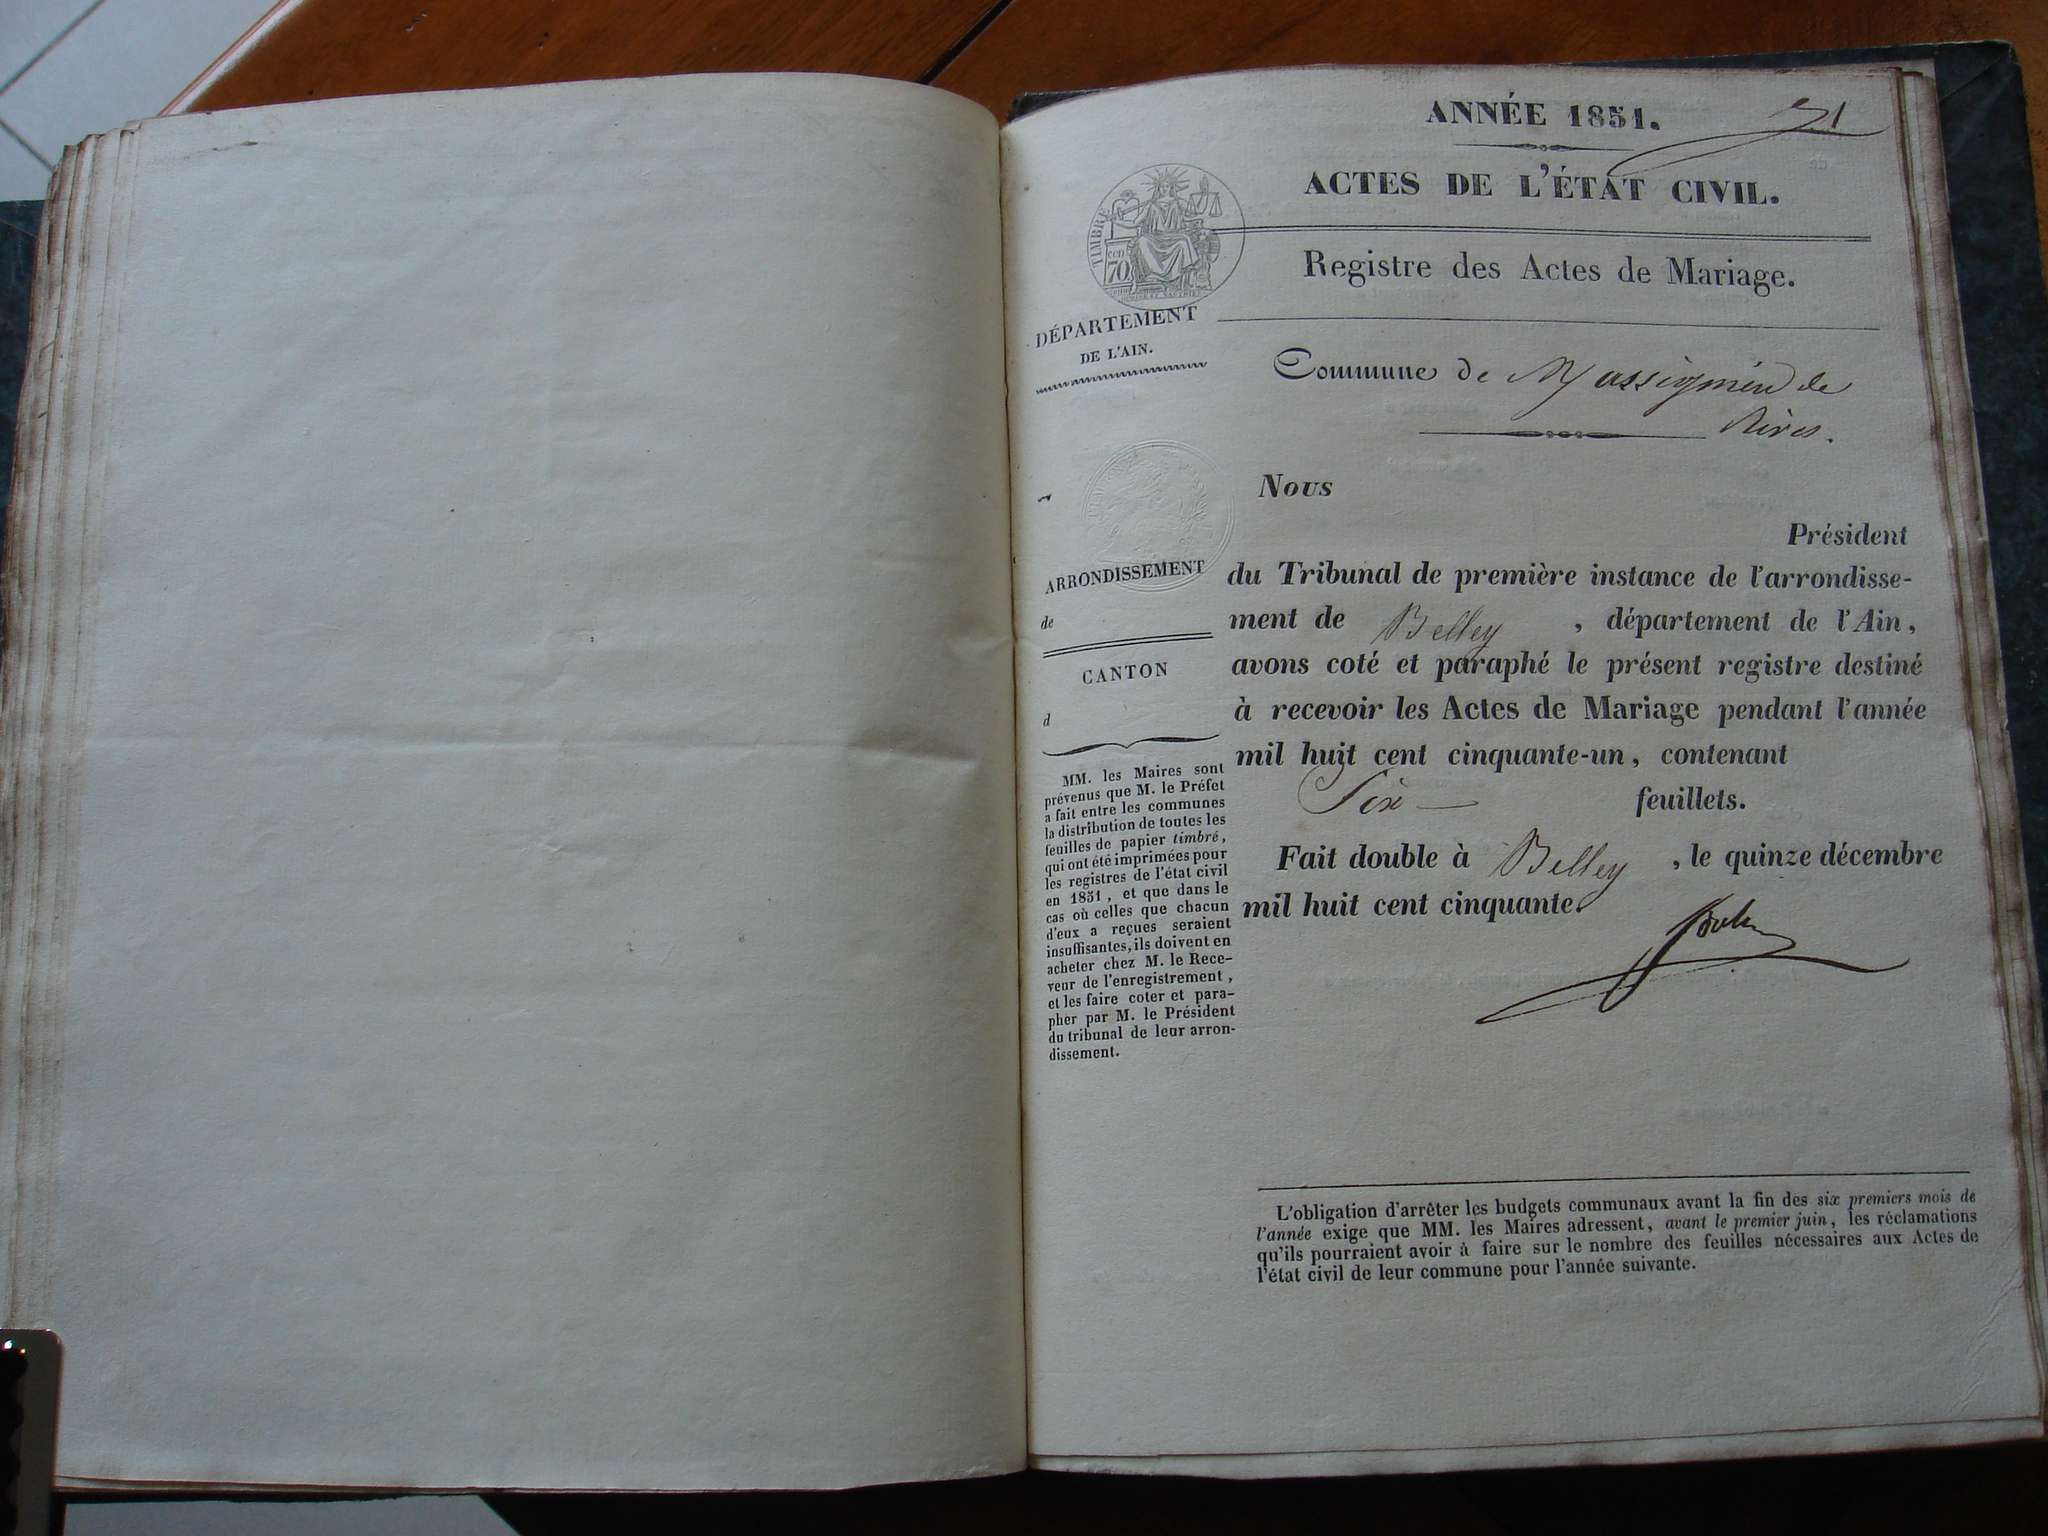 ANNÉE 1851.
ACTES DE L'ÉTAT CIVIL.
TIMBRE
70
Registre des Actes de Mariage.
DÉPARTEMENT
DE L'AIN.
Commune de Massignieu de
Rives.
Nous
Président
du Tribunal de première instance de l'arrondisse-
ment de Belley , département de l'Ain,
avons coté et paraphé le présent registre destiné
à recevoir les Actes de Mariage pendant l'année
mil huit cent cinquante-un, contenant
Six feuillets.
Fait double à Belley , le quinze décembre
mil huit cent cinquante.
ARRONDISSEMENT
de
CANTON
d
MM. les Maires sont
prévenus que M. le Préfet
a fait entre les communes
la distribution de toutes les
feuilles de papier timbré,
qui ont été imprimées pour
les registres de l'état civil
en 1851, et que dans le
cas où celles que chacun
d'eux a reçues seraient
insuffisantes, ils doivent en
acheter chez M. le Rece-
veur de l'enregistrement,
et les faire coter et para-
pher par M. le Président
du tribunal de leur arron-
dissement.
L'obligation d'arrêter les budgets communaux avant la fin des six premiers mois de
l'année exige que MM. les Maires adressent, avant le premier juin, les réclamations
qu'ils pourraient avoir à faire sur le nombre des feuilles nécessaires aux Actes de
l'état civil de leur commune pour l'année suivante.